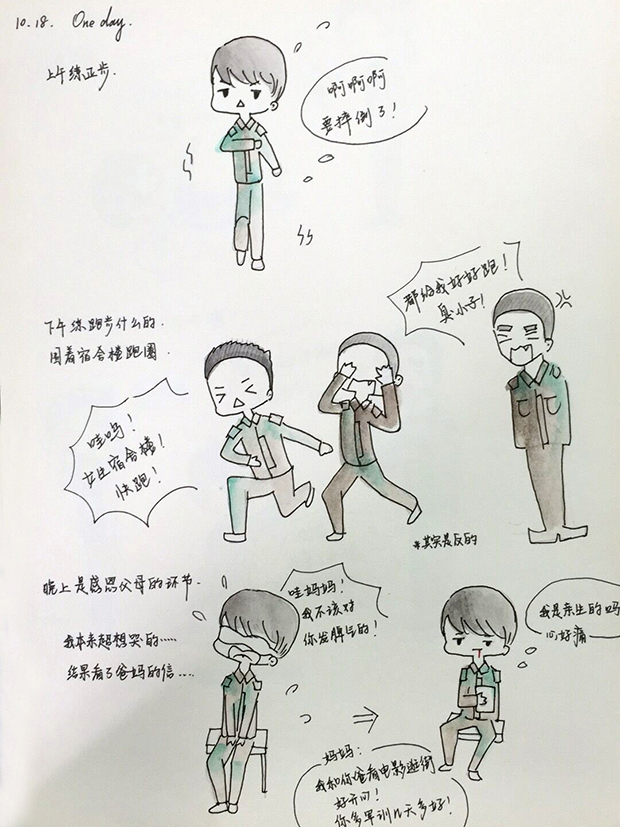 10.18. One day.
上午练正步.
啊啊啊啊
要摔倒了!
都给我好好跑!
臭小子!
下午练跑步什么的
围着宿舍楼跑圈.
哇呜!
女生宿舍楼!
快跑!
*其实是反的
晚上是感恩父母的环节.
我本来超想哭的.....
结果看了爸妈的信....
哇妈妈!
我不该对
你发脾气的!
我是亲生的吗
心好痛
妈妈:
我和你爸看电影逛街
好开心!
你多军训几天多好!